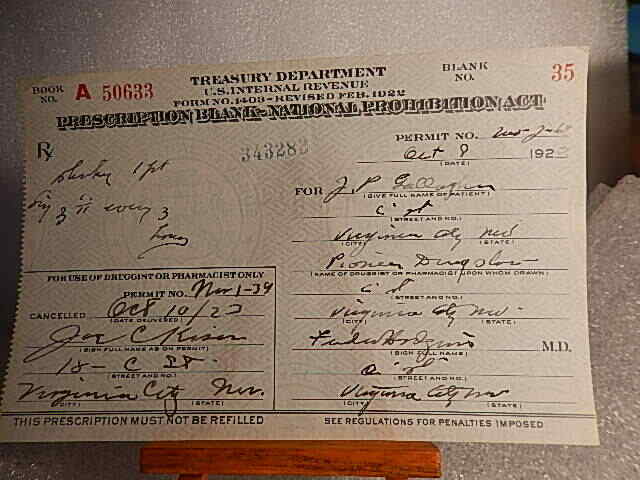 BOOK NO. A 50633
TREASURY DEPARTMENT
U.S. INTERNAL REVENUE
FORM NO. 1403-REVISED FEB. 1922
BLANK NO. 35
PRESCRIPTION BLANK-NATIONAL PROHIBITION ACT
℞
343282
PERMIT NO.
Oct 8 192
(DATE)
1 pt
3 every 3
FOR J. P.
(GIVE FULL NAME OF PATIENT)
C St
(STREET AND NO.)
Virginia City Nev
(CITY) (STATE)
Pioneer Drug Store
(NAME OF DRUGGIST OR PHARMACIST UPON WHOM DRAWN)
C St
(STREET AND NO.)
Virginia City Nev.
(CITY) (STATE)
M.D.
(SIGN FULL NAME)
(STREET AND NO.)
Virginia City Nev
(CITY) (STATE)
FOR USE OF DRUGGIST OR PHARMACIST ONLY
PERMIT NO. Nev 1-34
CANCELLED Oct 10/23
(DATE DELIVERED)
Joe C.
(SIGN FULL NAME AS ON PERMIT)
18- C St.
(STREET AND NO.)
Virginia City Nev.
(CITY) (STATE)
THIS PRESCRIPTION MUST NOT BE REFILLED
SEE REGULATIONS FOR PENALTIES IMPOSED